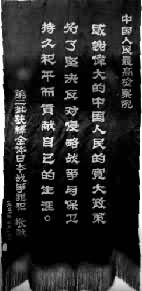 中国人民最高检察院
感谢伟大的中国人民的宽大政策
为了坚决反对侵略战争与保卫
持久和平而贡献自己的生涯。
第一批获释全体日本战争罪犯 敬献